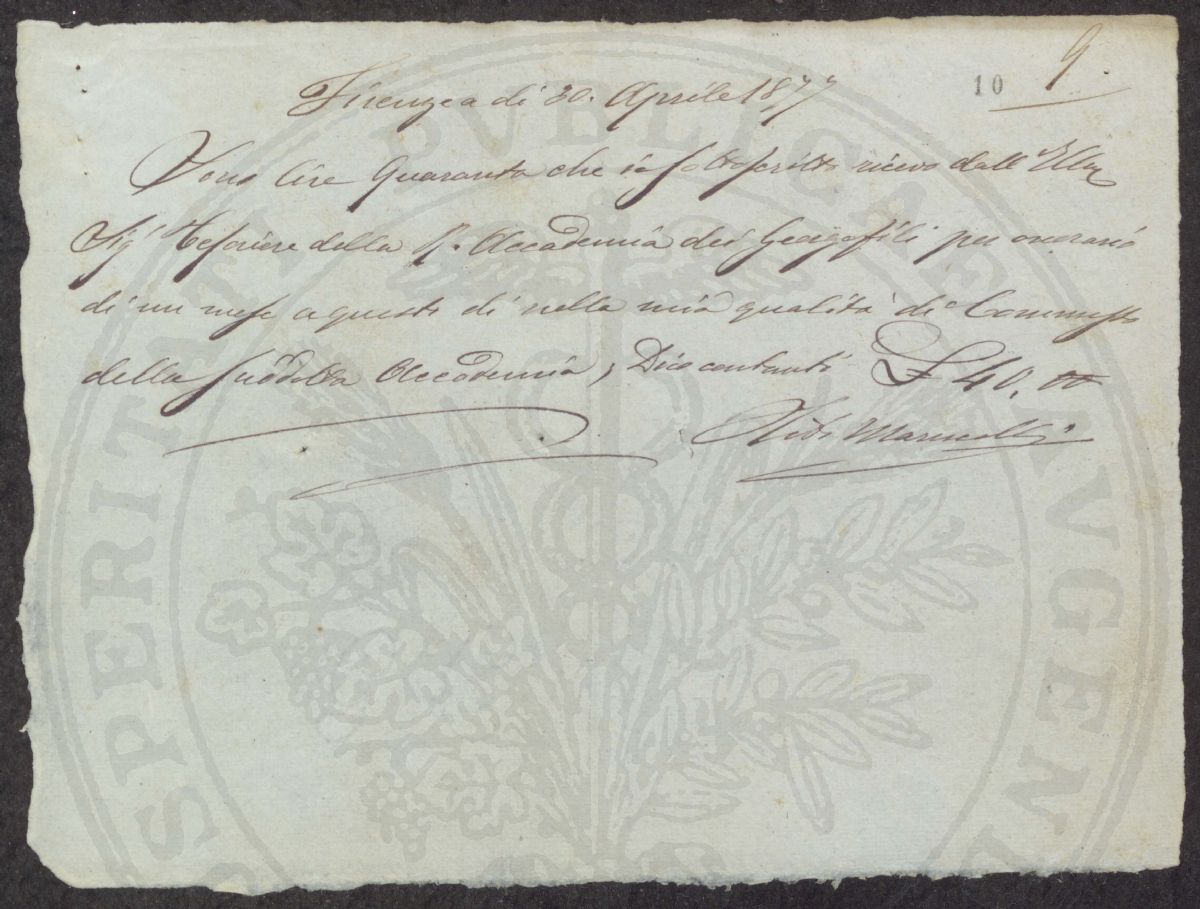 10 9
Firenze a di 30. Aprile 1877
Sono lire Quaranta che io sottoscritto ricevo dall' Illm
Sigr Tesoriere della R. Accademia dei Georgofili per onorario
di un mese a questo dì nella mia qualità di Commesso
della suddetta Accademia, Dico contanti £ 40. 00
Marucelli
PROSPERITATI PUBLICAE AUGENDAE